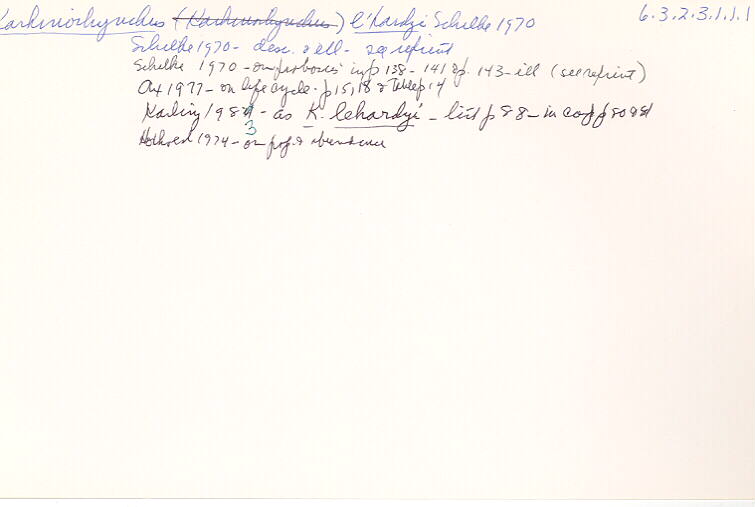 Karkinorhynchus (Karkinorhynchus) l'Hardyi Schilke 1970 6.3.2.3.1.1.1
Schilke 1970 - desc. & ill - see reprint
Schilke 1970 - on proboscis in p 138 - 141 & p. 143 - ill (see reprint)
Ax 1977 - on life cycle - p 15, 18 & Table p 14
Karling 1983 - as K. lehardyi - list p 88 - in
1974 - on & abundance